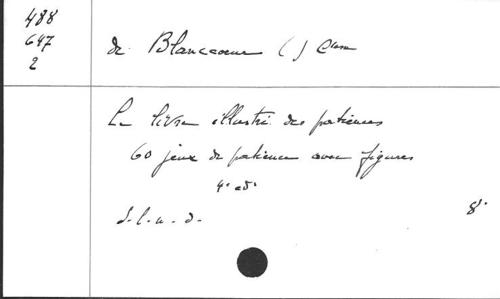 488
647
2
de Blanccoeur () Ctesse
Le livre illustré des patiences
60 jeux de patience avec figures
4e ed.
S.l.n.d.
8°